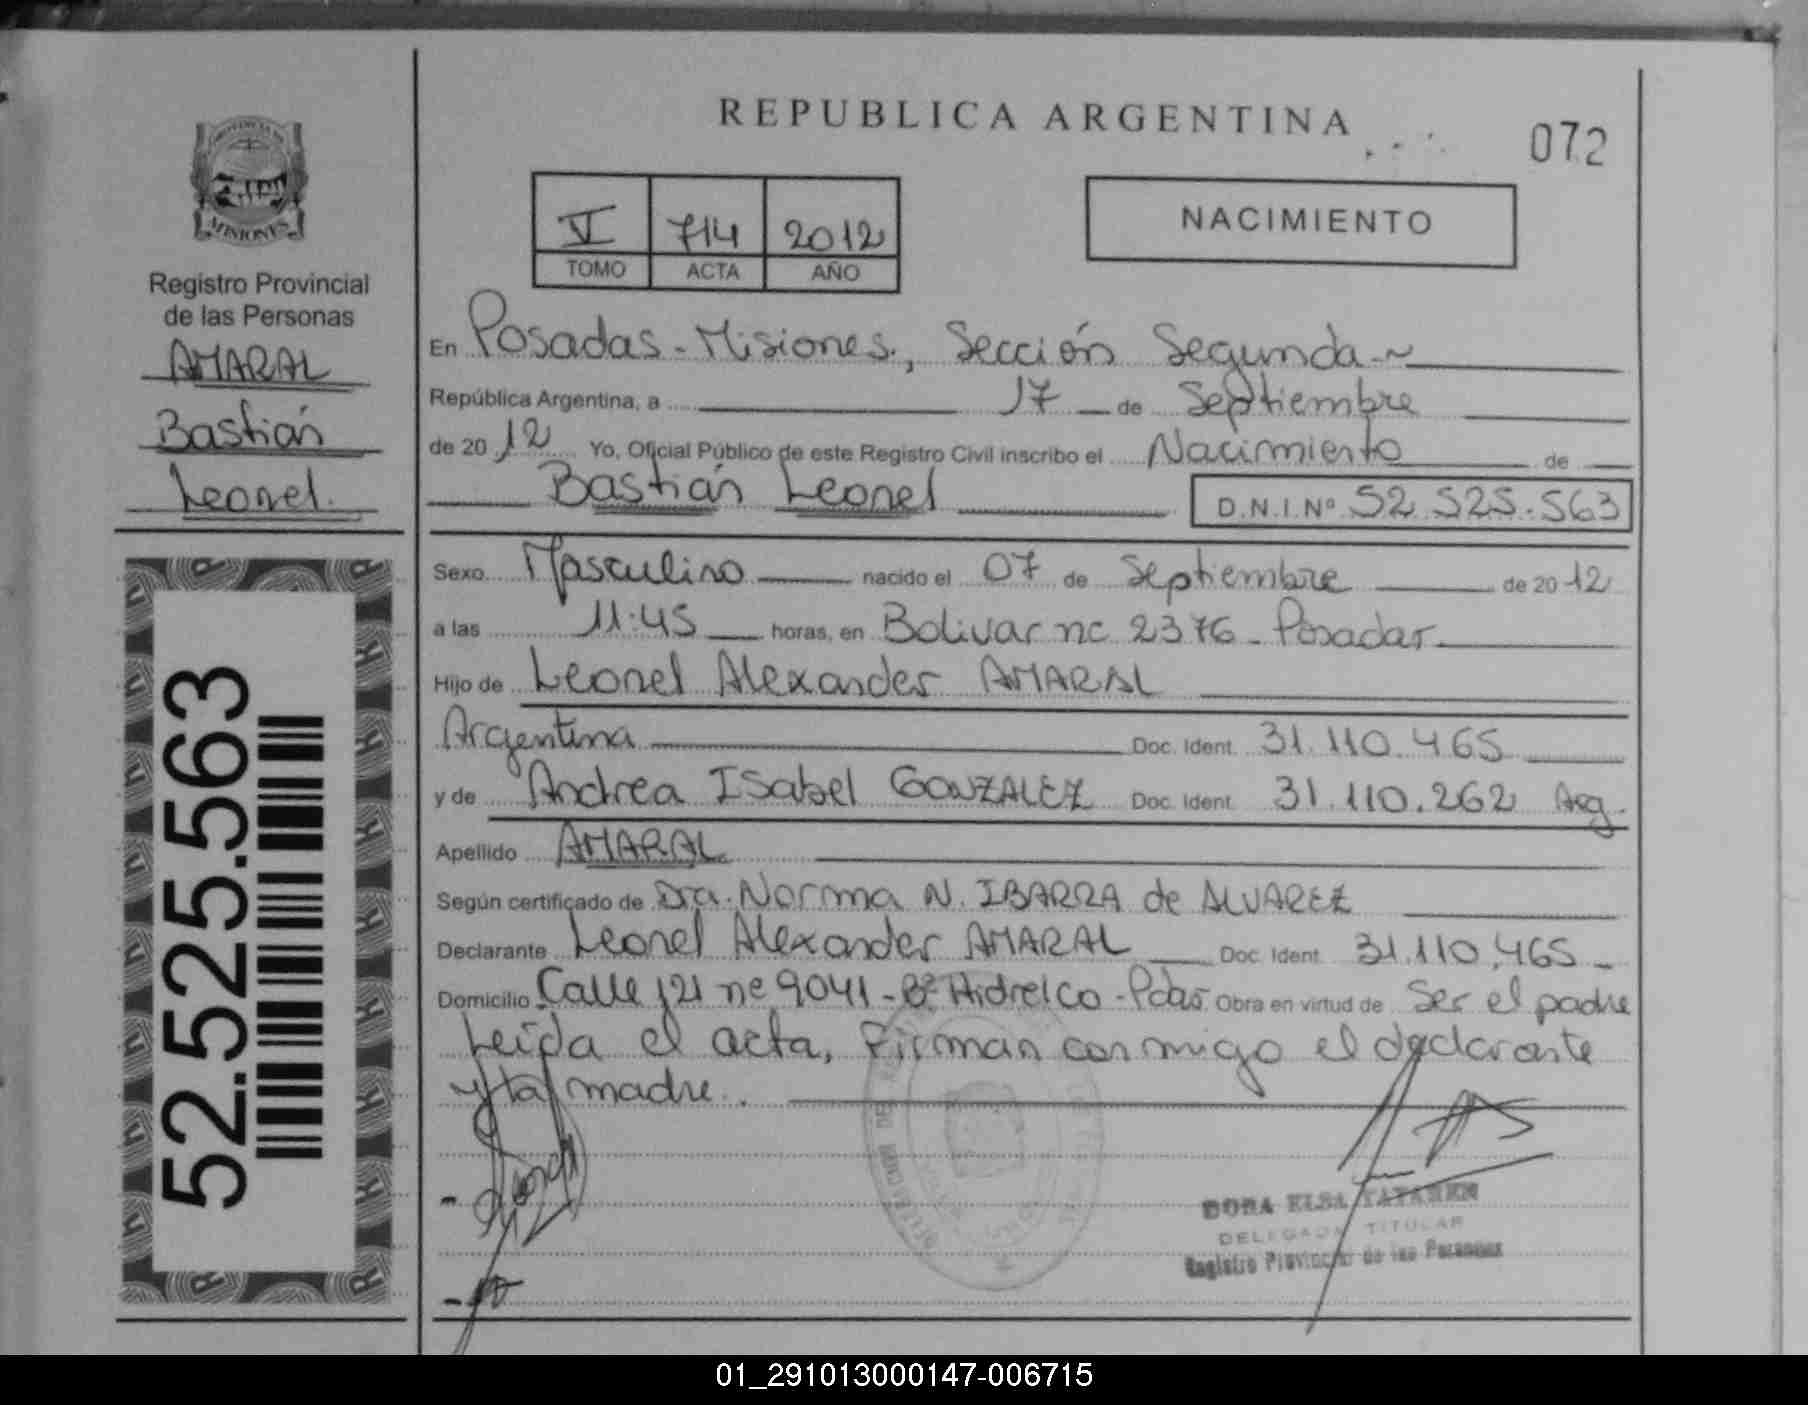 REPUBLICA ARGENTINA
072
PROVINCIA DE
MISIONES
Registro Provincial
de las Personas
AMARAL
Bastián
Leonel.
52.525.563
V 714 2012
TOMO ACTA AÑO
NACIMIENTO
En Posadas - Misiones, Sección Segunda
República Argentina, a 17 de Septiembre
de 2012 Yo, Oficial Público de este Registro Civil inscribo el Nacimiento de
Bastián Leonel D.N.I.Nº 52.525.563
Sexo Masculino nacido el 07 de Septiembre de 2012
a las 11:45 horas, en Bolivar nº 2376 - Posadas
Hijo de Leonel Alexander AMARAL
Argentina Doc. Ident. 31.110.465
y de Andrea Isabel GONZALEZ Doc. Ident. 31.110.262 Arg.
Apellido AMARAL
Según certificado de Dra. Norma N. IBARRA de ALVAREZ
Declarante Leonel Alexander AMARAL Doc. Ident. 31.110.465
Domicilio Calle 121 nº 9041 - Bº Hidrelco - Pdas Obra en virtud de Ser el padre
Leída el acta, firman conmigo el declarante
y la madre.
DORA ELSA
DELEGADA TITULAR
Registro Provincial de las Personas
01_291013000147-006715